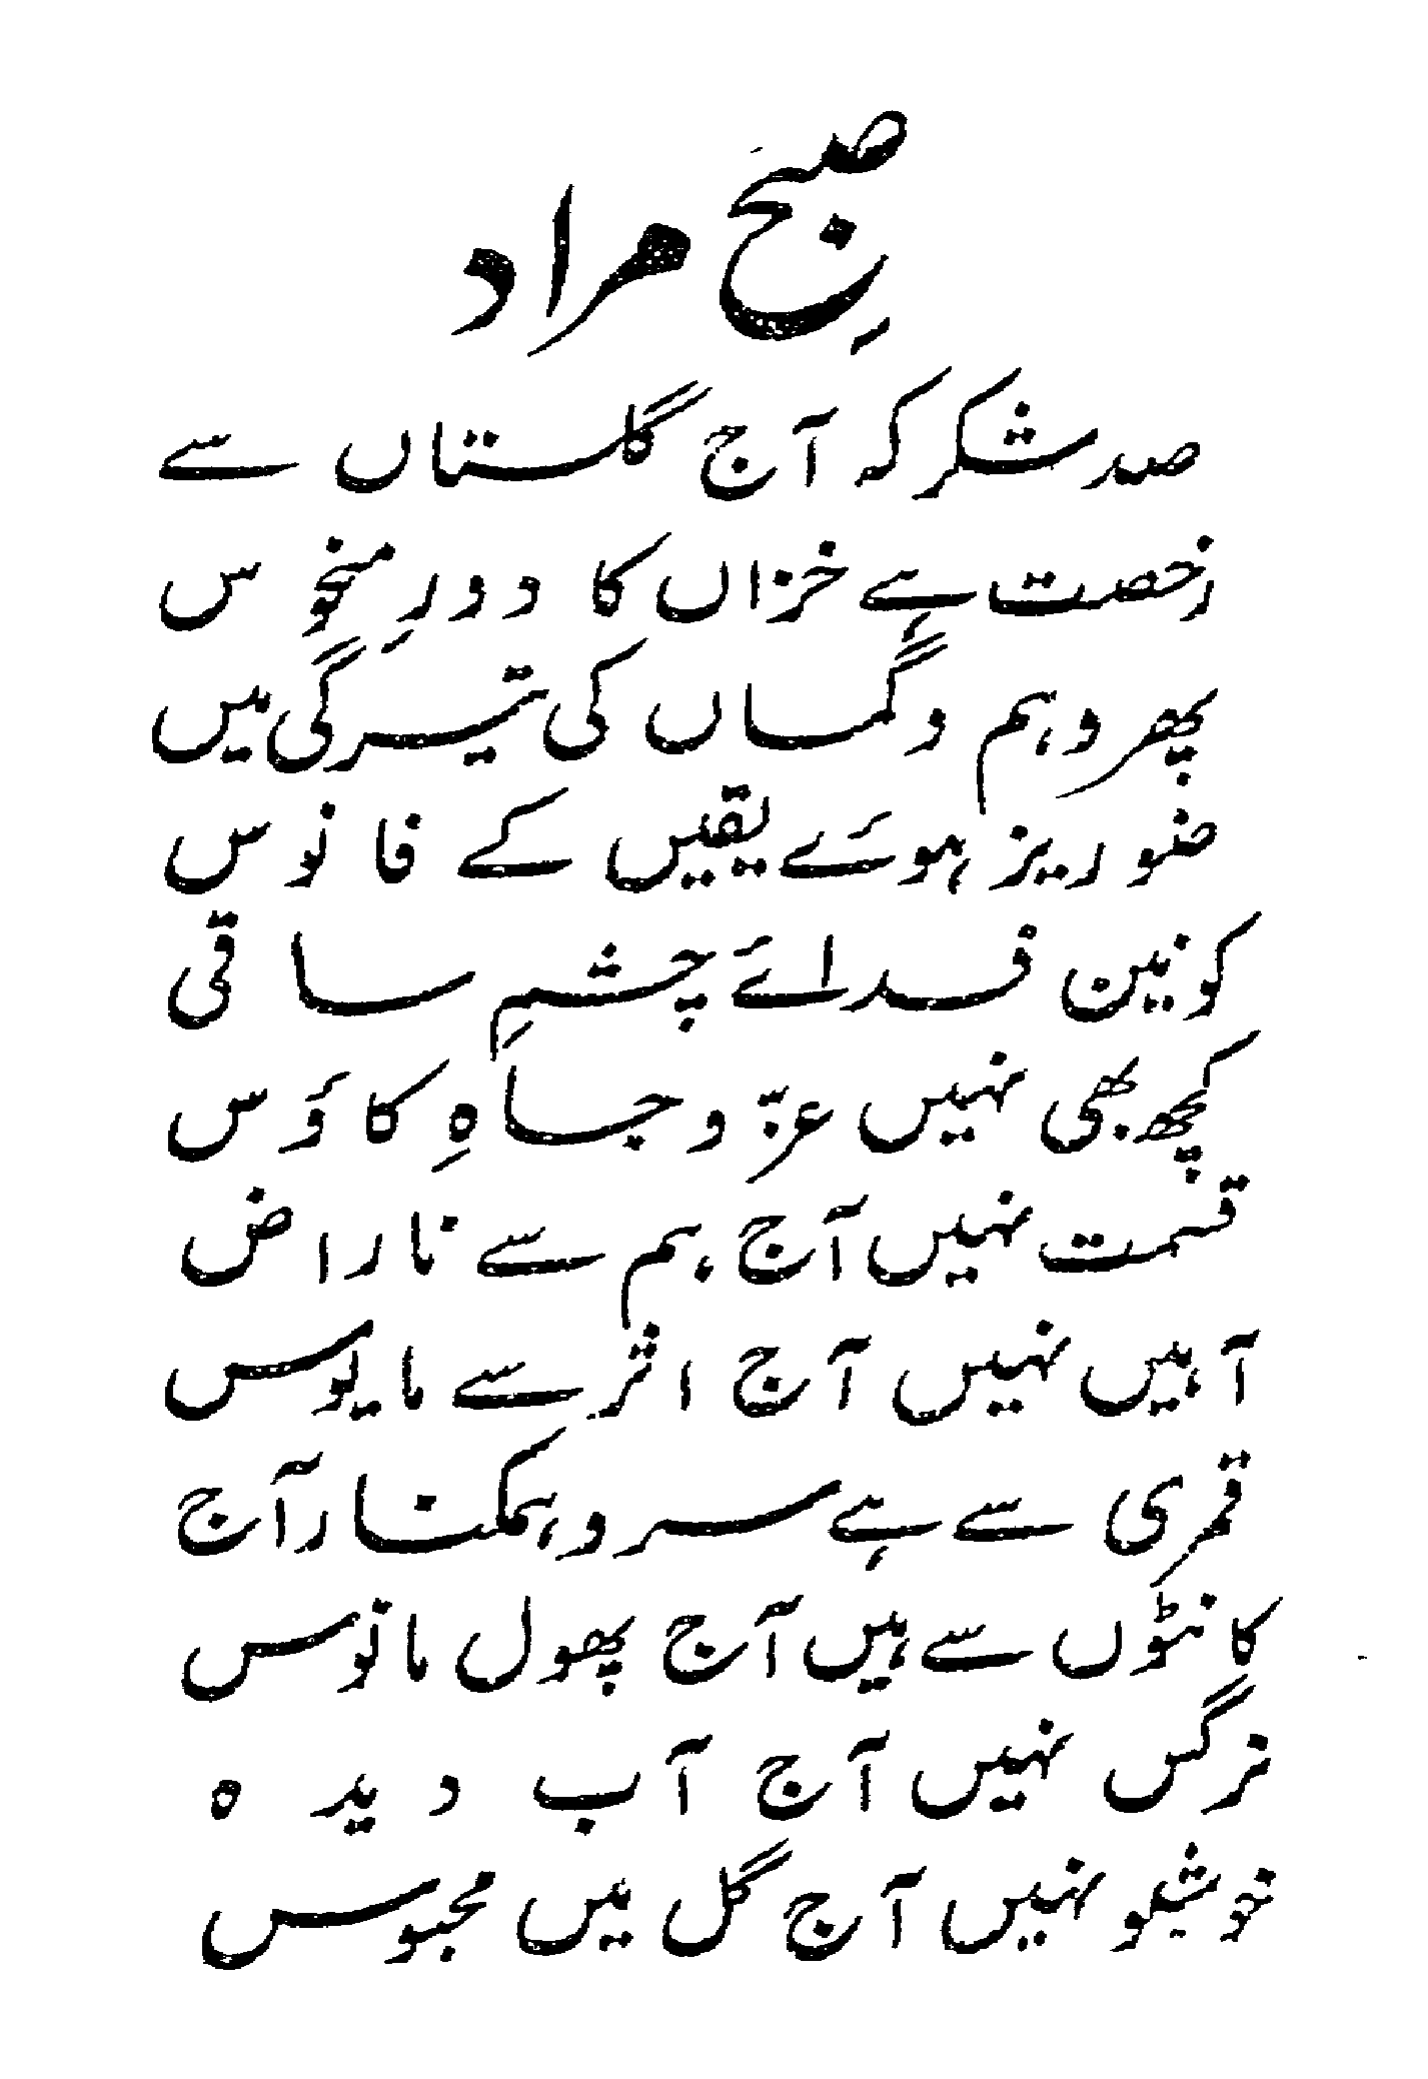 صبحِ مراد
صد شکر کہ آج گلستاں سے
رخصت ہے خزاں کا دورِ منحوس
پھر وہم و گماں کی تیرگی میں
ضو ریز ہوئے یقیں کے فانوس
کونین فدائے چشمِ ساقی
کچھ بھی نہیں عزّ و جاہِ کاؤس
قسمت نہیں آج ہم سے ناراض
آہیں نہیں آج اثر سے مایوس
قمری سے ہے سرو ہمکنار آج
کانٹوں سے ہیں آج پھول مانوس
نرگس نہیں آج آب دیدہ
خوشبو نہیں آج گل میں محبوس